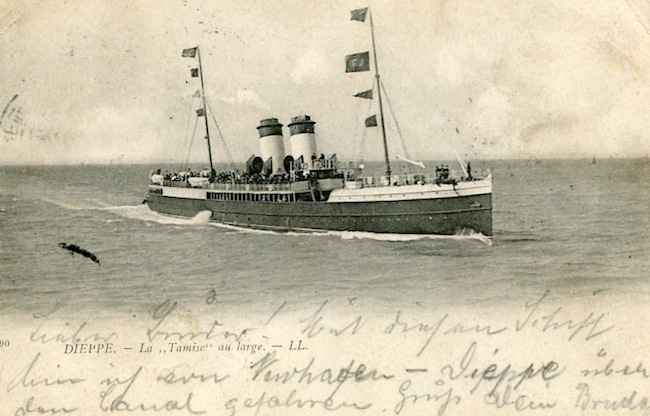 Lieber Bruder! Mit diesem Schiff
90 DIEPPE. - La „Tamise" au large. - LL.
bin ich von Newhaven - Dieppe über
den Canal gefahren. Gruß Dein Bruder